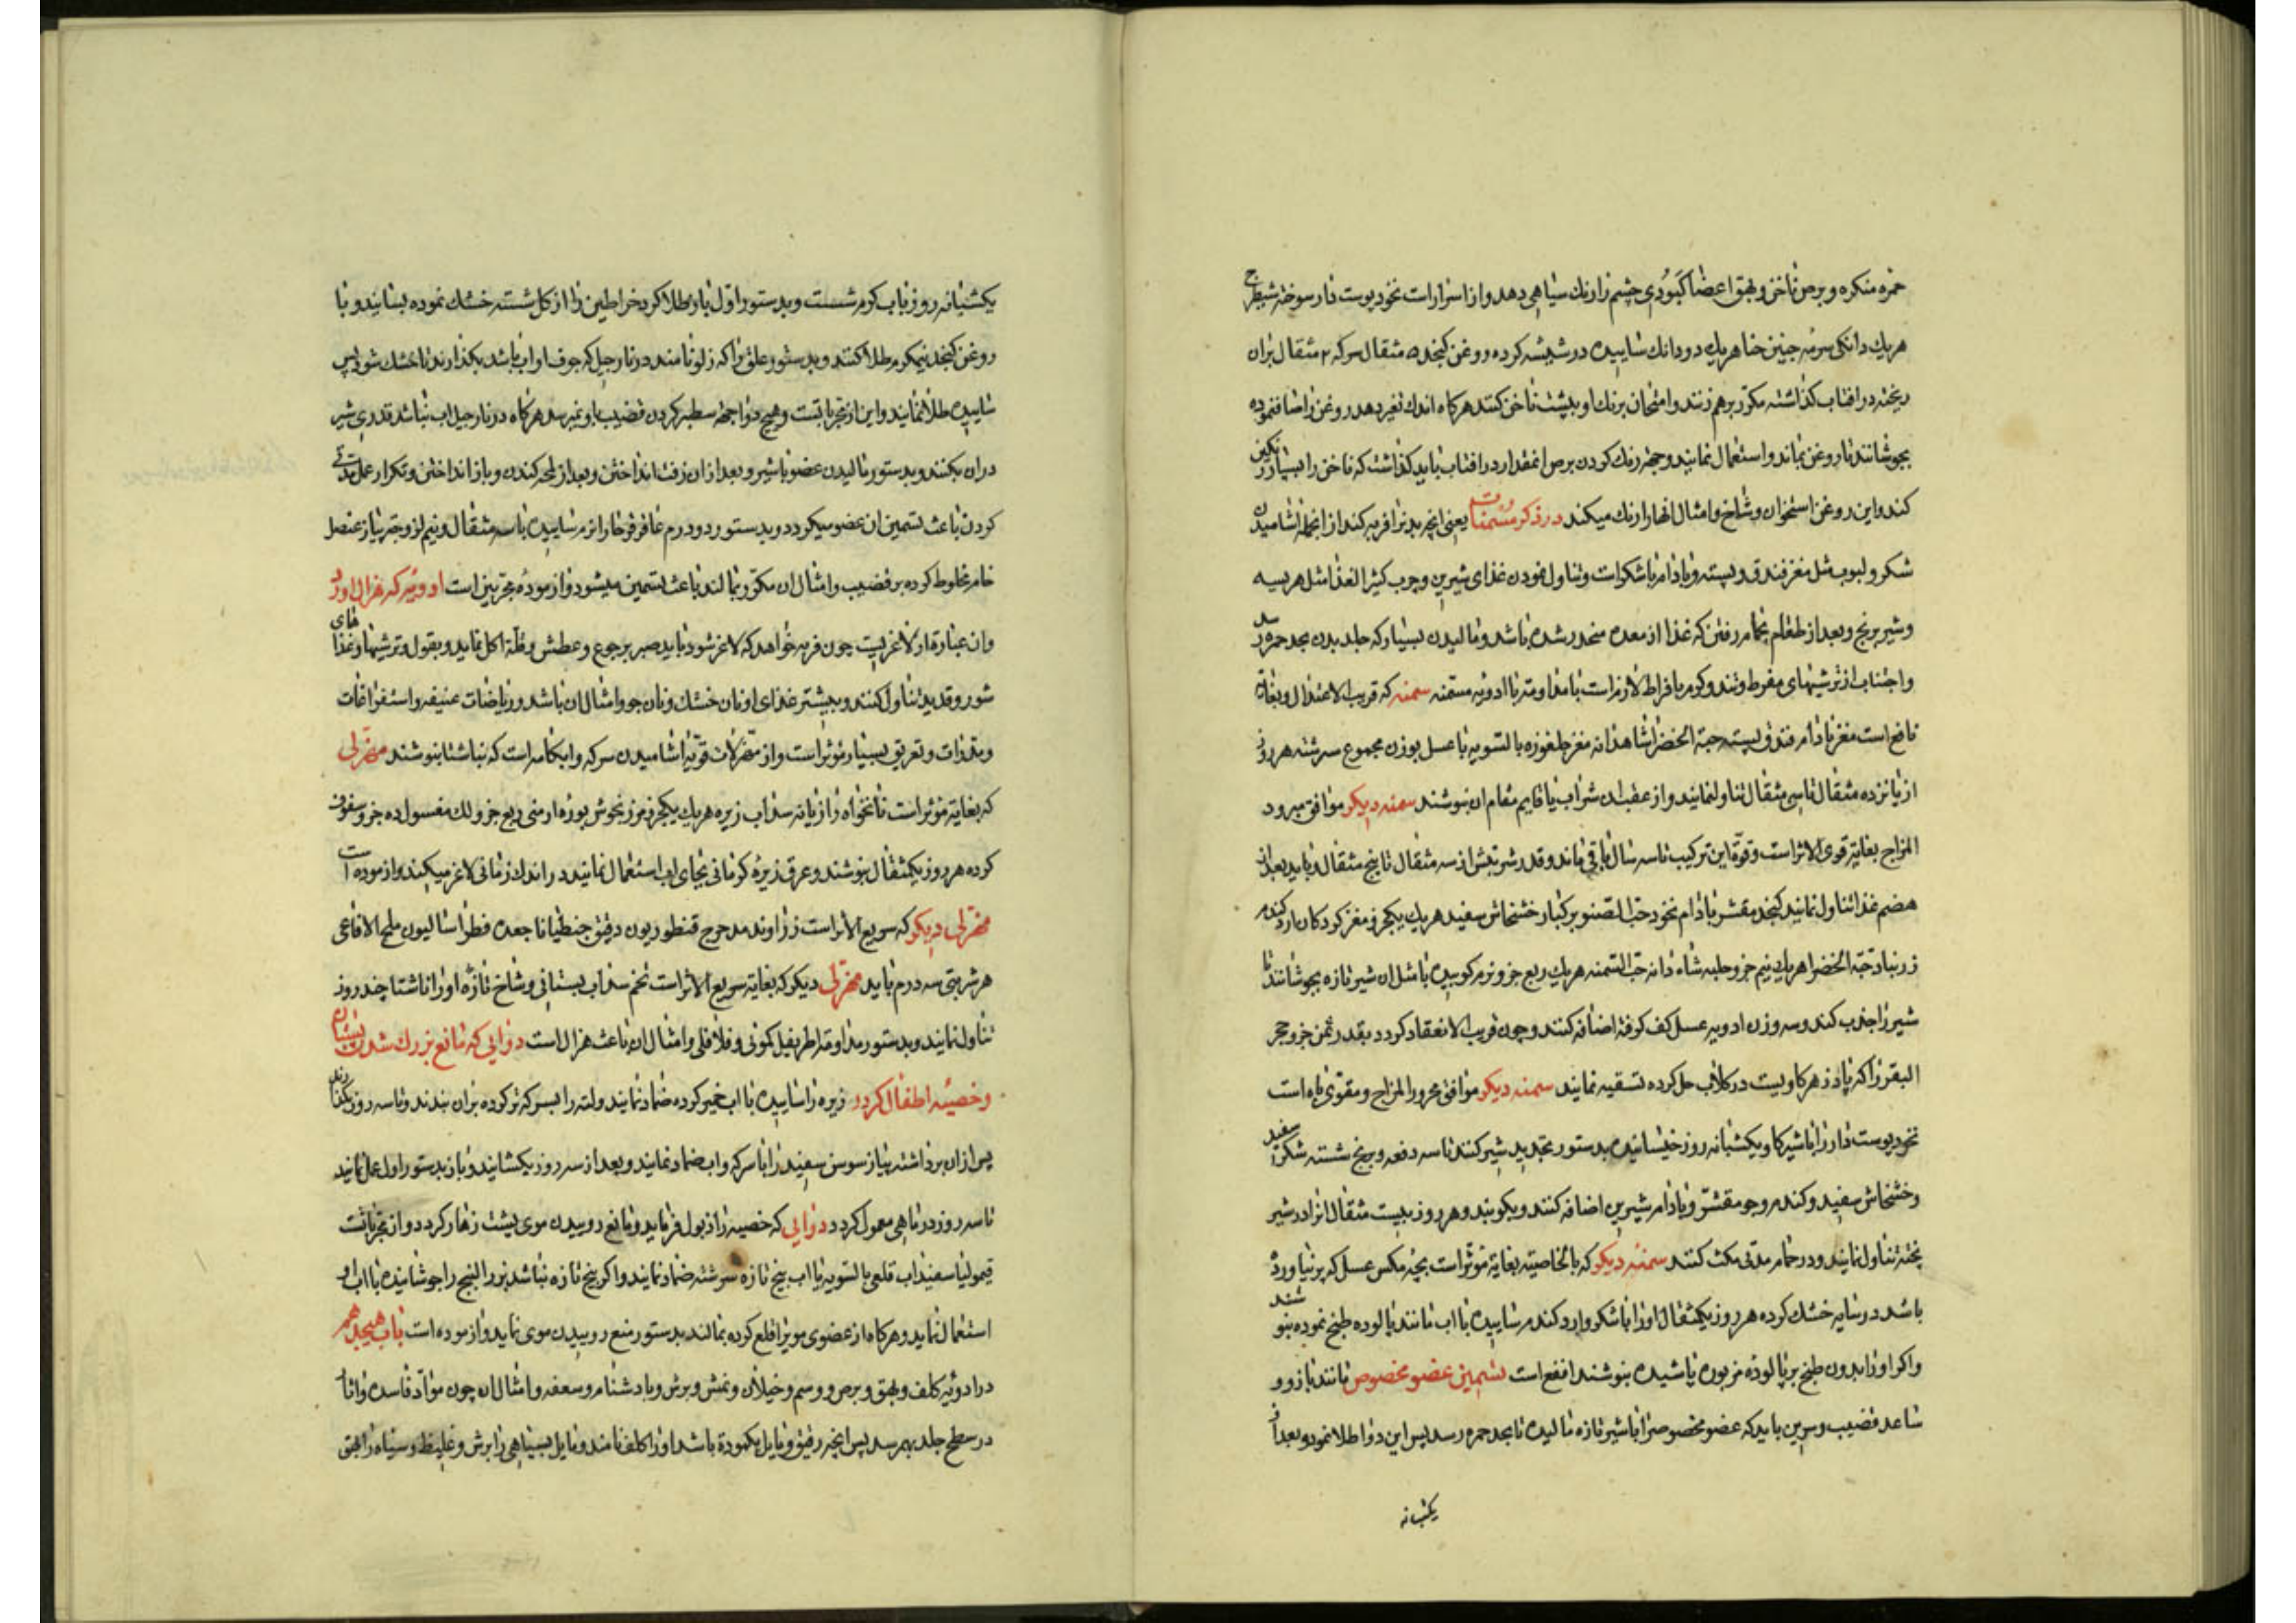 حمره منکره و برص ناخن و بهق اعضا کبودی چشم را رنك سیاهی دهد و از اسرار است نخود پوست دار سوخته شیطرج
هریك دانکی سرمه جبین حنا هریك دو دانك ساییده در شیشه کرده روغن کنجد ۵ مثقال سرکه ۲ مثقال بران
ریخته در افتاب کذاشته مکرر برهم زنند و امتحان برنك او بپشت ناخن کنند هرکاه اندك تغیر دهد روغن را صاف نموده
بجوشانند تا روغن بماند و استعمال نمایند و جهة رنك کردن برص انمقدار در افتاب باید کذاشت که ناخن را بسیار رنکین
کند و این روغن استخوان و شاخ و امثال انها را رنك میکند در ذکر مسمنات یعنی انچه بدنرا فربه کند از انجمله اشامیدن
شکر و لبوب مثل مغز فندق و پسته و بادام با شکر است و تناول نمودن غذای شیرین و چرب کثیر الغذا مثل هریسه
و شیر برنج و بعد از طعام بحمام رفتن که غذا از معده منحدر شده باشد و مالیدن بسیار که جلد بدن بحد حمره رسد
و اجتناب از ترشیهای مفرط و تند و کرم بافراط لازم است با مداومته با ادویه مسمنه سمنه که قریب الاعتدال و بغایة
نافع است مغز بادام فندق پسته حبة الخضرا شاهدانه مغز چلغوزه بالسویه با عسل بوزن مجموع سرشته هر روز
از پانزده مثقال تا سی مثقال تناول نمایند و از عقب ان شراب یا قایم مقام ان بنوشند سمنه دیکر موافق مبرود
المزاج بغایة قوی الاثر است و قوة این ترکیب تا سه سال باقی ماند و قدر شربتش از سه مثقال تا پنج مثقال و باید بعد از
هضم غذا تناول نمایند کنجد مقشر بادام نخود حب الصنوبر کبار خشخاش سفید هریك یکجزو مغز کردکان ارد کندم
زرنباد حبة الخضرا هریك نیم جزو حلبه شاه دانه حب السمنه هریك ربع جزو نرم کوبیده با مثل ان شیر تازه بجوشانند تا
شیر را جذب کند و سه وزن ادویه عسل کف کرفته اضافه کنند و چون قریب الانعقاد کردد بقدر ثمن جزو حجر
البقر را که پادزهر کاویست در کلاب حل کرده تسقیه نمایند سمنه دیکر موافق محرور المزاج و مقوی باه است
نخود پوست دار را با شیر کاو یکشبانه روز خیسانیده بدستور تجدید شیر کنند تا سه دفعه و برنج شسته شکر سفید
و خشخاش سفید و کندم و جو مقشر و بادام شیرین اضافه کنند و بکوبند و هر روز بیست مثقال انرا در شیر
پخته تناول نمایند و در حمام مدتی مکث کنند سمنه دیکر که بالخاصیته بغایة موثر است بچه مکس عسل که پر نیاورده
باشد در سایه خشك کرده هر روز یکمثقال او را با شکر و ارد کندم ساییده با اب مانند پالوده طبخ نموده بنوشند
و اکر او را بدون طبخ بر پالوده مزبوره پاشیده بنوشند انفع است تسمین عضو مخصوص مانند بازو و
ساعد قضیب و سرین باید که عضو مخصوص را با شیر تازه مالیده تا بحد حمره رسد پس این دوا طلا نمود و بعد از
یکشبانه
یکشبانه روز باب کرم شست و بدستور اول باز طلا کرد خراطین را از کل شسته خشك نموده بسایند و با
روغن کنجد نیمکرم طلا کنند و بدستور علق را که زلو نامند در نارجیل که جوف او اب باشد بکذارند تا خشك شود پس
ساییده طلا نمایند و این از مجربا تست و هیچ دوا جهة سطبر کردن قضیب باو نمیرسد هرکاه در نارجیل اب نباشد قدری شیر
دران بکنند و بدستور مالیدن عضو با شیر و بعد ازان زفت انداختن و بعد از لمحه کندن و باز انداختن و تکرار عمل مدتی
کردن باعث تسمین ان عضو میکردد و بدستور دو درم عاقرقرحا را نرم ساییده با سه مثقال و نیم لزوجة پیاز عنصل
خام مخلوط کرده بر قضیب و امثال ان مکرر بمالند باعث تسمین میشود و ازموده مجربین است ادویه که هزال اورد
وان عبارة از لاغریست چون فربه خواهد که لاغر شود باید صبر بر جوع و عطش و قلة اکل نماید و بقول و ترشیها و غذاهای
شور و قدید تناول کنند و بیشتر غذای او نان خشك و نان جو و امثال ان باشد و ریاضات عنیفه و استفراغات
و مدرات و تعریق بسیار موثر است و از مهزلات قویه اشامیدن سرکه و ابکامه است که بناشتا بنوشند مهزلی
که بغایة موثر است نانخواه رازیانه سداب زیره هریك یکجزو مرزنجوش بوره ارمنی ربع جزو لك مغسول ده جزو سفوف
کرده هر روز یکمثقال بنوشند و عرق زیره کرمانی بجای اب استعمال نمایند در اندك زمانی لاغر میکند و ازموده است
مهزلی دیکر که سریع الاثر است زراوند مدحرج قنطوریون دقیق جنطیانا جعده فطراسالیون ملح الافاعی
هر شربتی سه درم باید مهزلی دیکر که بغایة سریع الاثر است تخم سداب بستانی و شاخ تازه او را ناشتا چند روز
تناول نمایند و بدستور مداومة اطریفل کمونی و فلافلی و امثال ان باعث هزال است دوایی که مانع بزرك شدن پستان
و خصیه اطفال کردد زیره را ساییده با اب خمیر کرده ضماد نمایند و لته را بسرکه تر کرده بران بندند و تا سه روز نکشایند
پس ازان برداشته پیاز سوسن سفید را با سرکه و اب ضماد نمایند و بعد از سه روز بکشایند و باز بدستور اول عمل نمایند
تا سه روز در ماهی معمول کردد دوایی که خصیه را از بول فرماید و مانع روییدن موی پشت زهار کردد و از مجرباتست
قیمولیا سفیداب قلعی بالسویه با اب بنج تازه سرشته ضماد نمایند و اکر بنج تازه نباشد بزر البنج را جوشانیده با اب او
استعمال نماید و هرکاه از عضوی مو برا قلع کرده بمالند بدستور منع روییدن موی نماید و ازموده است باب هیجدهم
در ادویه کلف و بهق و برص و وسم و خیلان و نمش و برش و بادشنام و سعفه و امثال ان چون مواد فاسده را اثار
در سطح جلد بهم رسد پس انچه رقیق و مایل بکمودة باشد او را کلف نامند و مایل بسیاهی را برش و غلیظ و سیاه را بهق